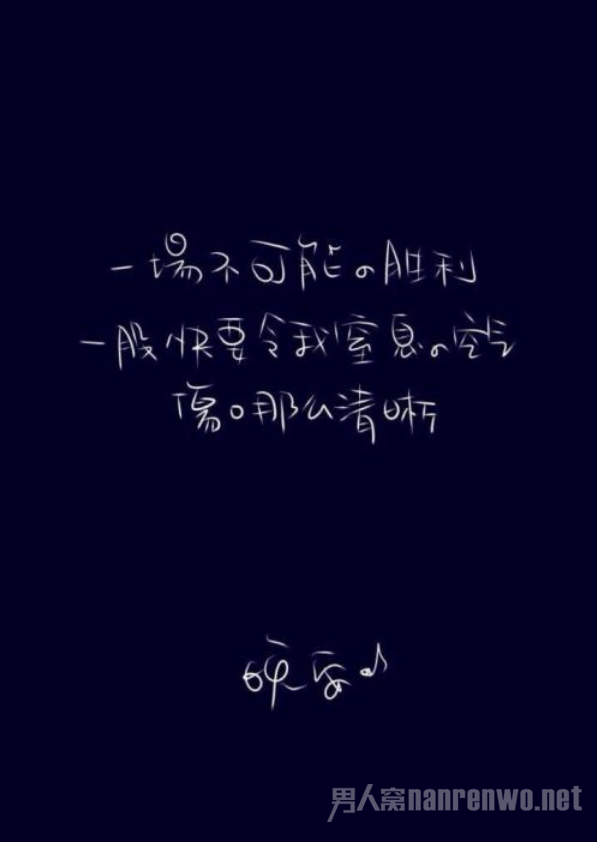 一場不可能の胜利
一股快要令我窒息の空气
傷口那么清晰
晚安♪
男人窝nanrenwo.net